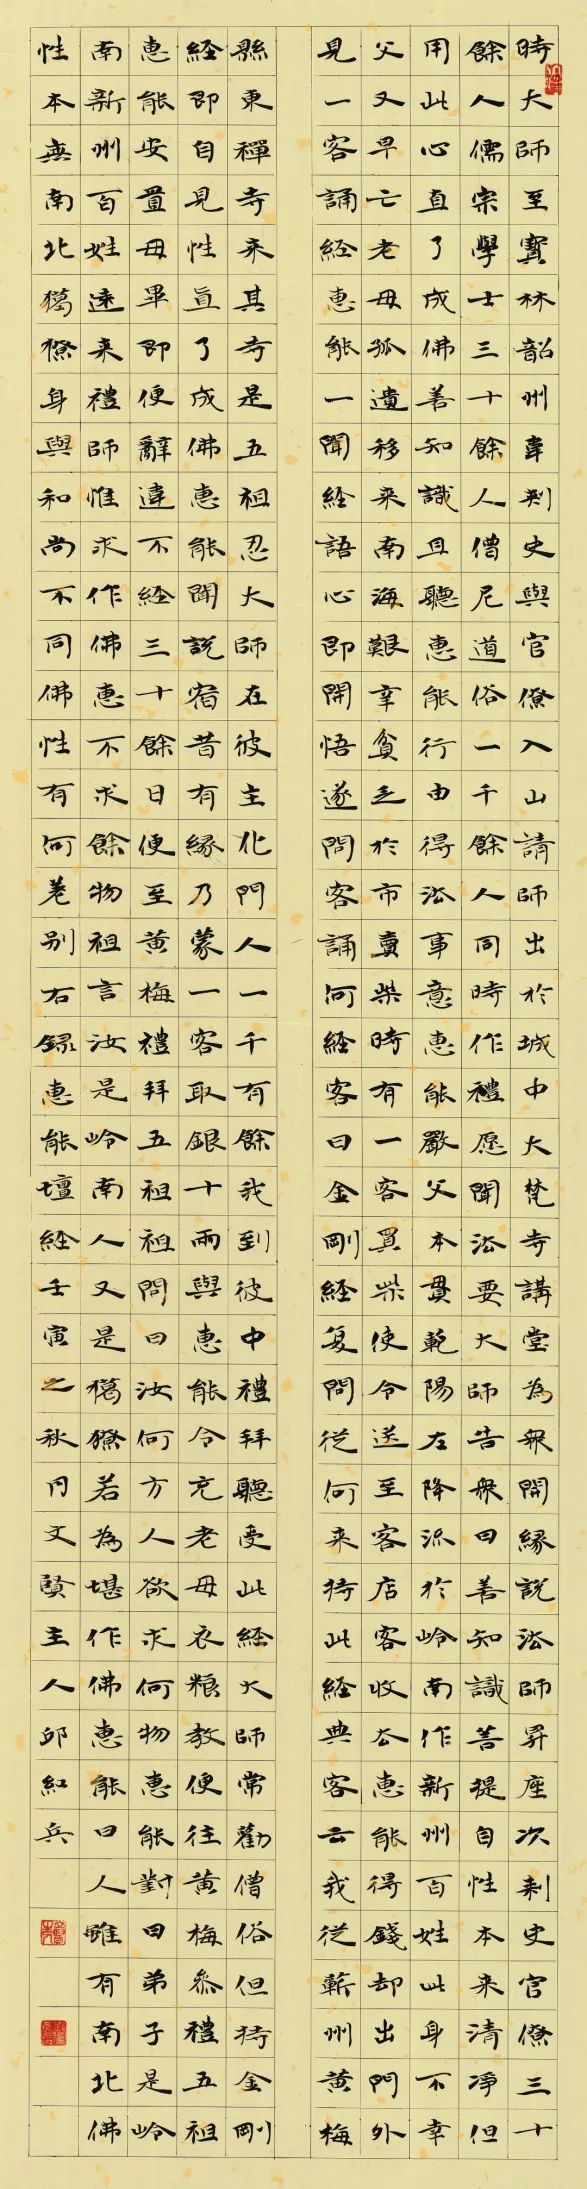 時大師至寶林韶州韋刺史與官僚入山請師出於城中大梵寺講堂為眾開緣說法師昇座次刺史官僚三十
餘人儒宗學士三十餘人僧尼道俗一千餘人同時作禮愿聞法要大師告眾曰善知識菩提自性本来清凈但
用此心直了成佛善知識且聽惠能行由得法事意惠能嚴父本貫範陽左降流於岭南作新州百姓此身不幸
父又早亡老母孤遺移来南海艱辛貧乏於市賣柴時有一客買柴使令送至客店客收去惠能得錢却出門外
見一客誦經惠能一聞經語心即開悟遂問客誦何經客曰金剛經复問從何来持此經典客云我從蘄州黄梅
縣東禪寺来其寺是五祖忍大師在彼主化門人一千有餘我到彼中禮拜聽受此經大師常勸僧俗但持金剛
經即自見性直了成佛惠能聞說宿昔有緣乃蒙一客取銀十兩與惠能令充老母衣粮教便往黄梅參禮五祖
惠能安置母畢即便辭違不經三十餘日便至黄梅禮拜五祖祖問曰汝何方人欲求何物惠能對曰弟子是岭
南新州百姓遠来禮師惟求作佛惠不求餘物祖言汝是岭南人又是獦獠若為堪作佛惠能曰人雖有南北佛
性本無南北獦獠身與和尚不同佛性有何差別右錄惠能壇經壬寅之秋月文賢主人邱紅兵